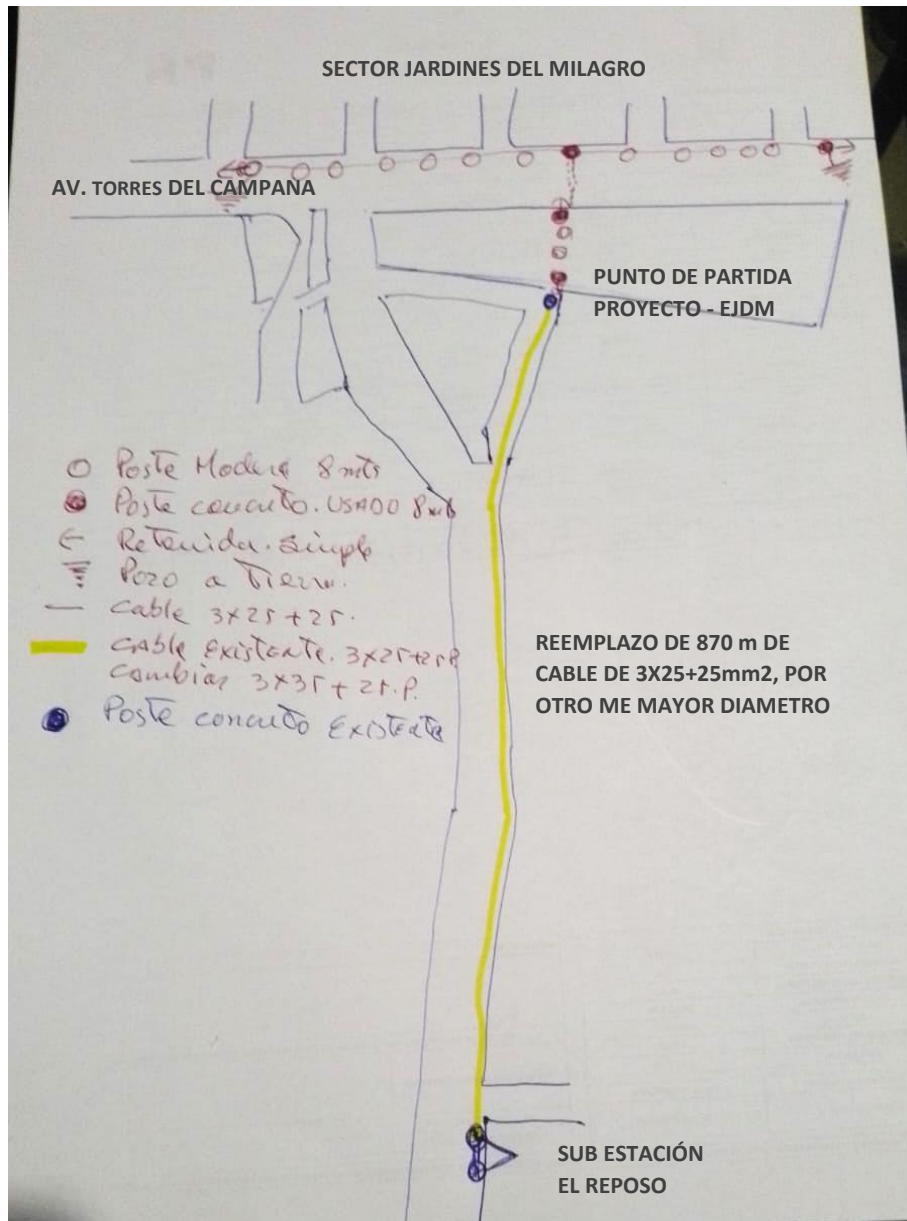 SECTOR JARDINES DEL MILAGRO
AV. TORRES DEL CAMPANA
PUNTO DE PARTIDA
PROYECTO - EJDM
Poste Madera 8 mts
Poste concreto. USADO 8 mts
Retenida. Simple
Pozo a Tierra.
Cable 3x25 + 25.
CAble Existente. 3x25+25P.
Cambiar 3x35 + 25.P.
Poste concreto Existente
REEMPLAZO DE 870 m DE
CABLE DE 3X25+25mm2, POR
OTRO ME MAYOR DIAMETRO
SUB ESTACIÓN
EL REPOSO